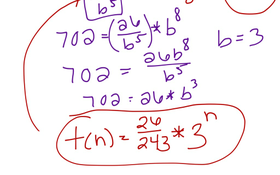 b⁵
702 = (26/b⁵) * b⁸ b = 3
702 = 26b⁸/b⁵
702 = 26 * b³
f(n) = 26/243 * 3ⁿ